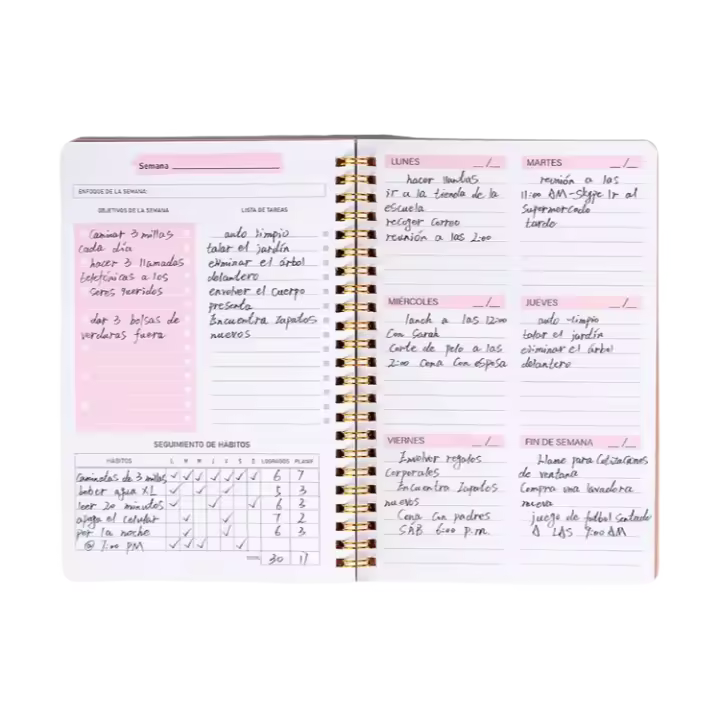 Semana
ENFOQUE DE LA SEMANA:
OBJETIVOS DE LA SEMANA
Caminar 3 millas
cada día
hacer 3 llamadas
telefónicas a los
seres queridos
dar 3 bolsas de
verduras fuera
LISTA DE TAREAS
auto limpio
talar el jardín
eliminar el árbol
delantero
envolver el cuerpo
presenta
Encuentra zapatos
nuevos
SEGUIMIENTO DE HÁBITOS
HÁBITOS L M M J V S D LOGRADOS PLANIF
Caminatas de 3 millas ✓ ✓ ✓ ✓ ✓ ✓ ✓ 6 7
beber agua XL 5 3
leer 20 minutos 6 3
apaga el celular 7 2
por la noche 6 3
@ 7:00 PM
TOTAL 30 17
LUNES __/__
hacer llantas
ir a la tienda de la
escuela
recoger correo
reunión a las 2:00
MARTES __/__
reunión a las
11:00 AM-Skype Ir al
supermercado
tarde
MIÉRCOLES __/__
lanch a las 12:00
Con Sarah
Corte de pelo a las
2:00 Cena Con esposa
JUEVES __/__
auto limpio
talar el jardín
eliminar el árbol
delantero
VIERNES __/__
Envolver regalos
corporales
Encuentra Zapatos
nuevos
Cena Con padres
SAB 6:00 p.m.
FIN DE SEMANA __/__
Llame para Cotizaciones
de ventana
Compra una lavadora
nueva
juego de futbol Sentado
A LAS 9:00 AM